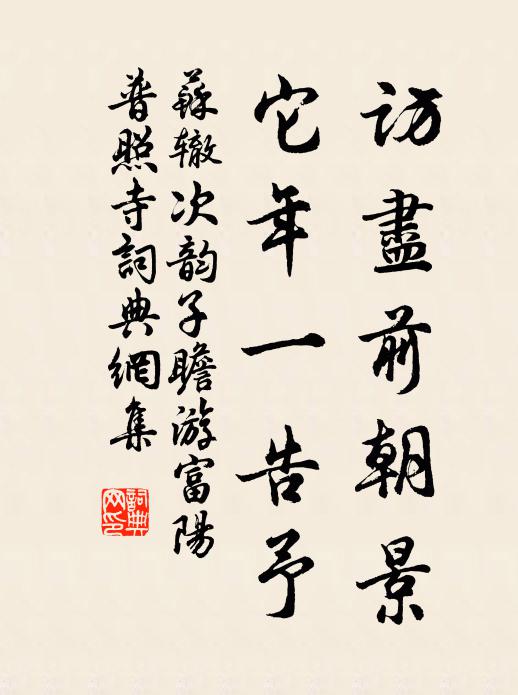 訪盡前朝景
它年一告予
蘇辙次韵子瞻游富陽
普照寺詞典網集
詞典网印